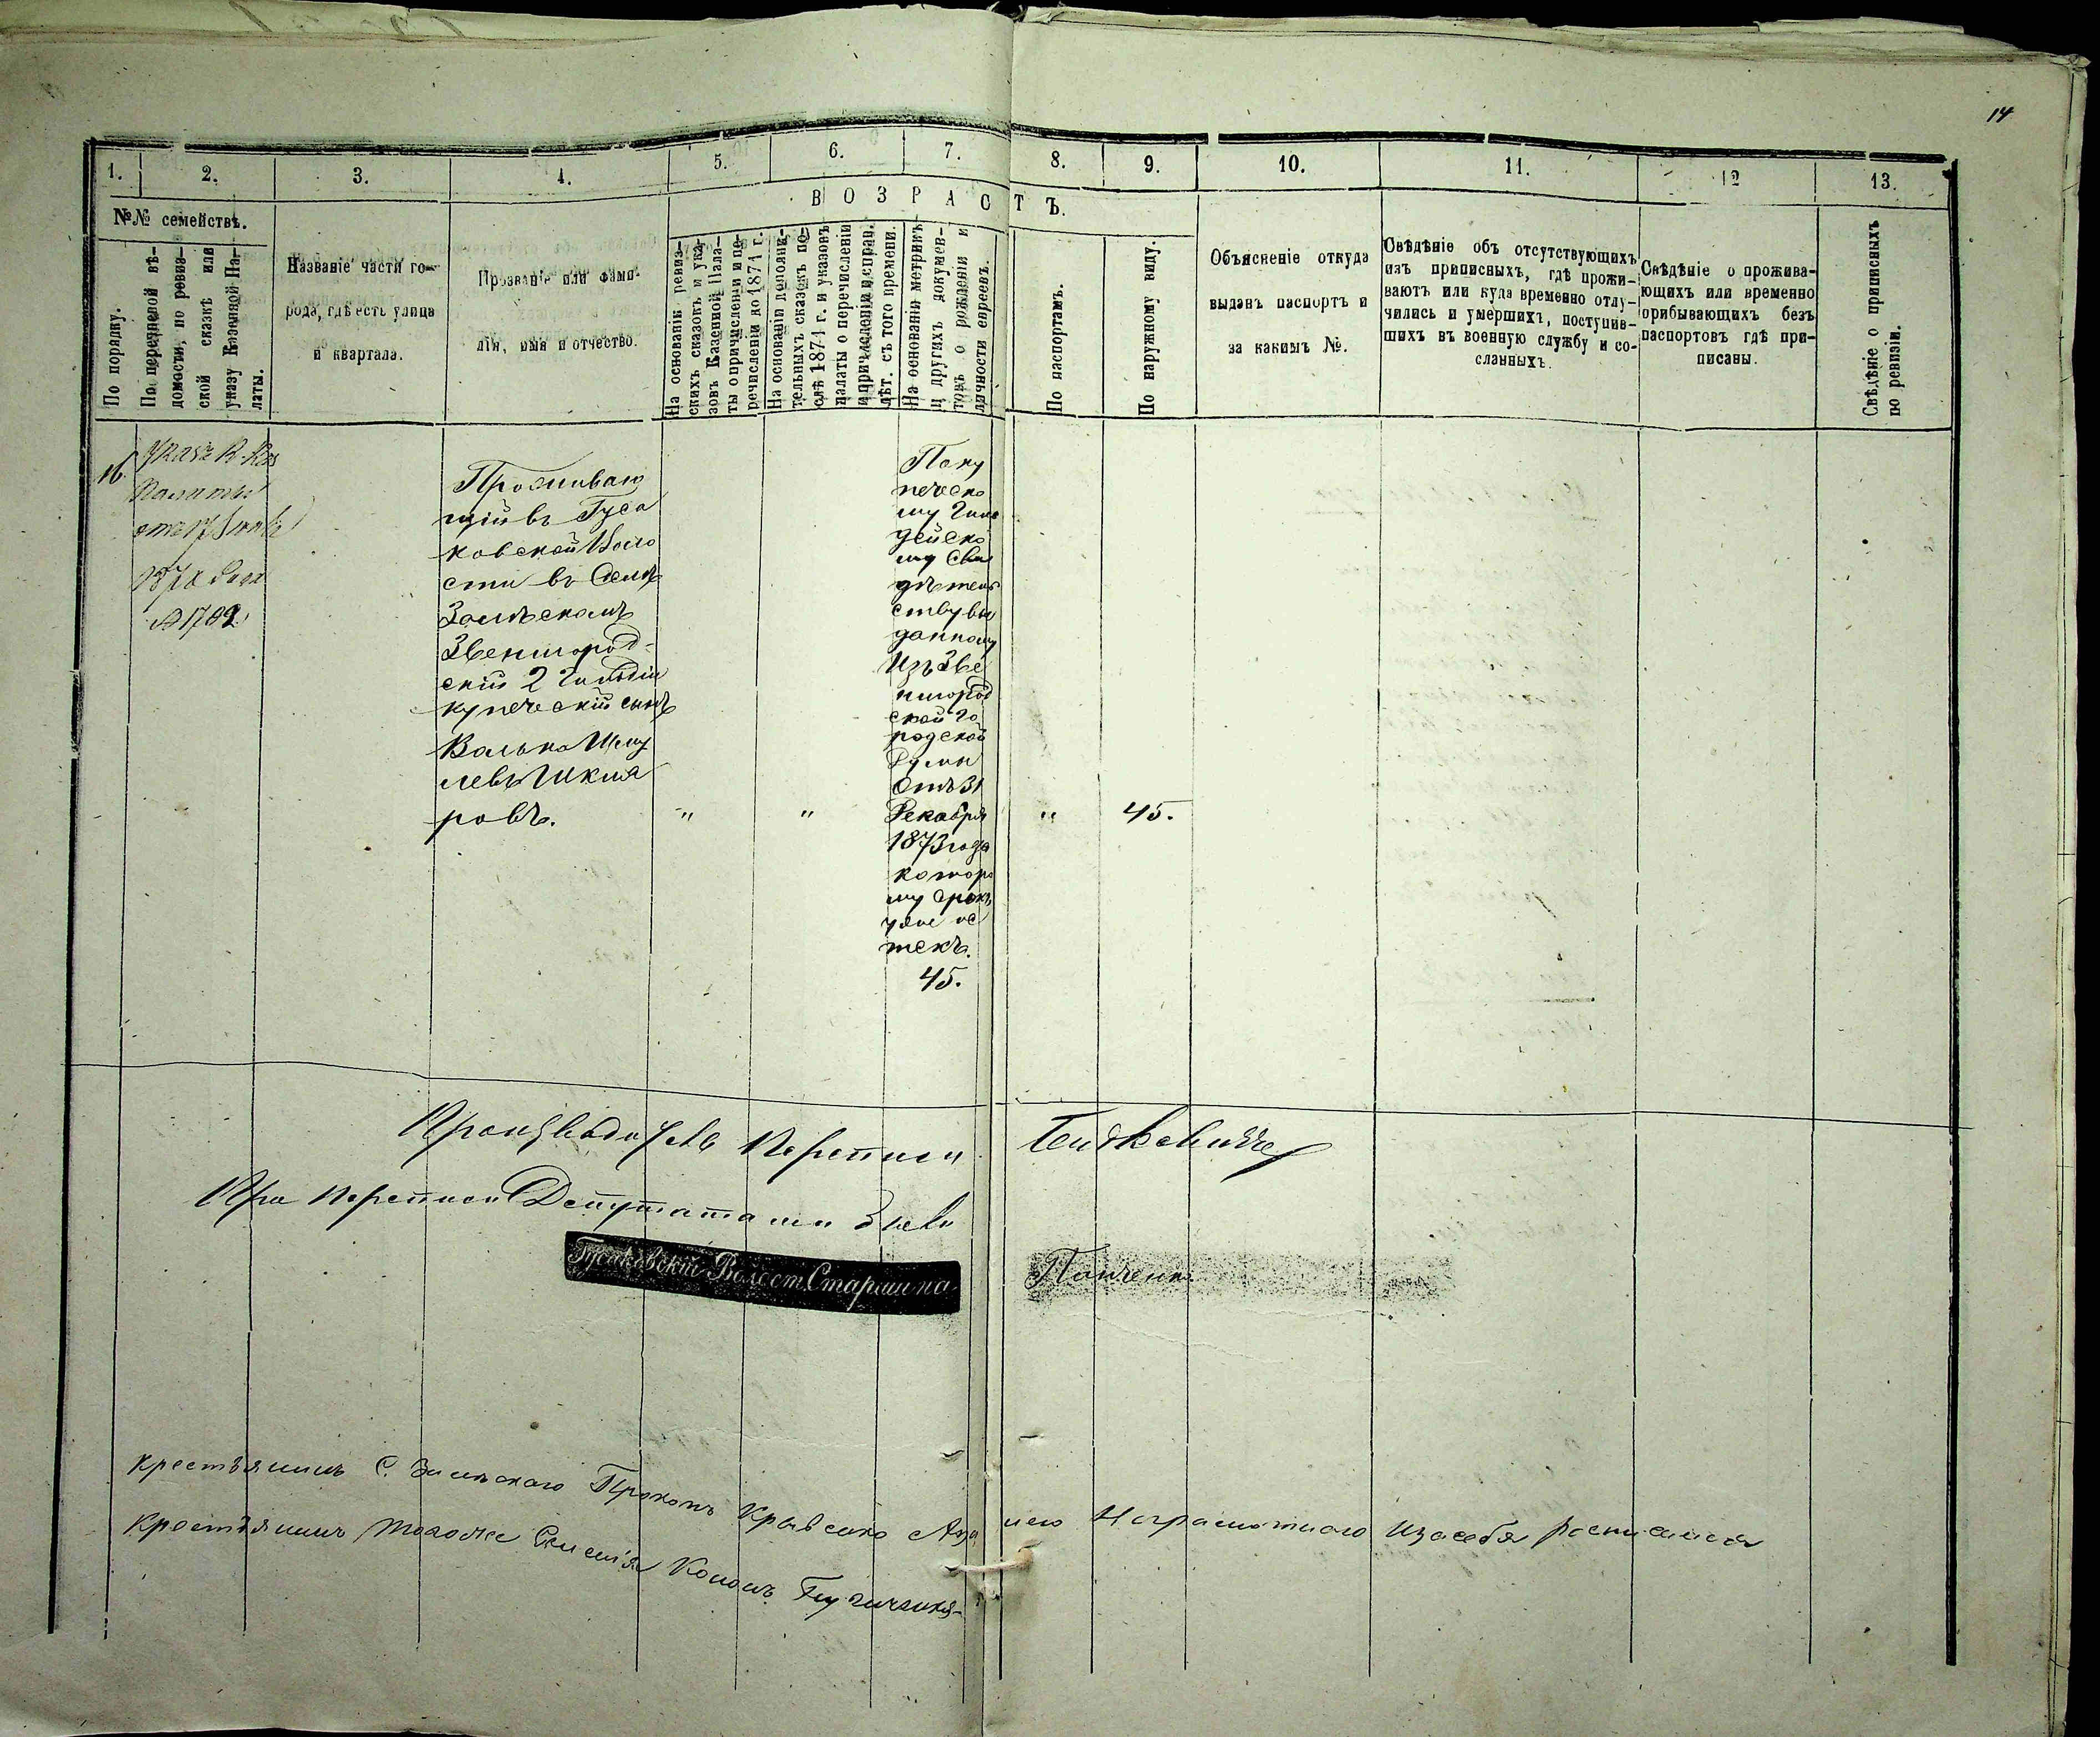 14
1. 2. 3. 4. 5. 6. 7. 8. 9. 10. 11. 12 13.
ВОЗРАСТЪ.
№№ семействъ.
По порядку.
По переписной вѣ-
домости, по ревиз-
ской сказкѣ или
указу Казенной Па-
латы.
Названіе части го-
рода, гдѣ есть улица
и квартала.
Прозваніе или фами-
лія, имя и отчество.
На основаніи ревиз-
скихъ сказокъ и ука-
зовъ Казенной Пала-
ты о причисленіи и пе-
речисленіи до 1871 г.
На основаніи дополни-
тельныхъ сказокъ по-
слѣ 1871 г. и указовъ
палаты о перечисленіи
и причисленіи и справ.
лѣт. съ того времени.
На основаніи метрикъ
и другихъ докумен-
товъ о рожденіи и
личности евреевъ.
По паспортамъ.
По наружному виду.
Объясненіе откуда
выданъ паспортъ и
за какимъ №.
Свѣдѣніе объ отсутствующихъ
изъ приписныхъ, гдѣ прожи-
ваютъ или куда временно отлу-
чились и умершихъ, поступив-
шихъ въ военную службу и со-
сланныхъ.
Свѣдѣніе о прожива-
ющихъ или временно
прибывающихъ безъ
паспортовъ гдѣ при-
писаны.
Свѣдѣніе о приписныхъ
по ревизіи.
16.
Указъ К. Каз
Палаты
отъ 17
187 года
Проживаю
щій въ Гуса
ковской Воло
сти въ Селѣ
Залѣскомъ
Звенигород-
скій 2 Гильдіи
купеческій сынъ
Валько Шму
левъ Шкля
ровъ.
" "
По ку
печеско
му Гиль
дейско
му Сви
дѣтель
ству вы
данному
Изъ Зве
нигород
ской го
родской
Думы
Отъ 31
Декабря
1873 года
которо
му срокъ
уже ис
текъ.
45.
" 45.
Производитель Переписи
При Переписи Депутатами были
Гусаковскій Волост. Старшина Панченко
Крестьянинъ С. Залѣскаго Прокопъ Кривенко Аза него Неграмотнаго Изасебя росписался
Крестьянинъ Тогоже Селенія Кононъ